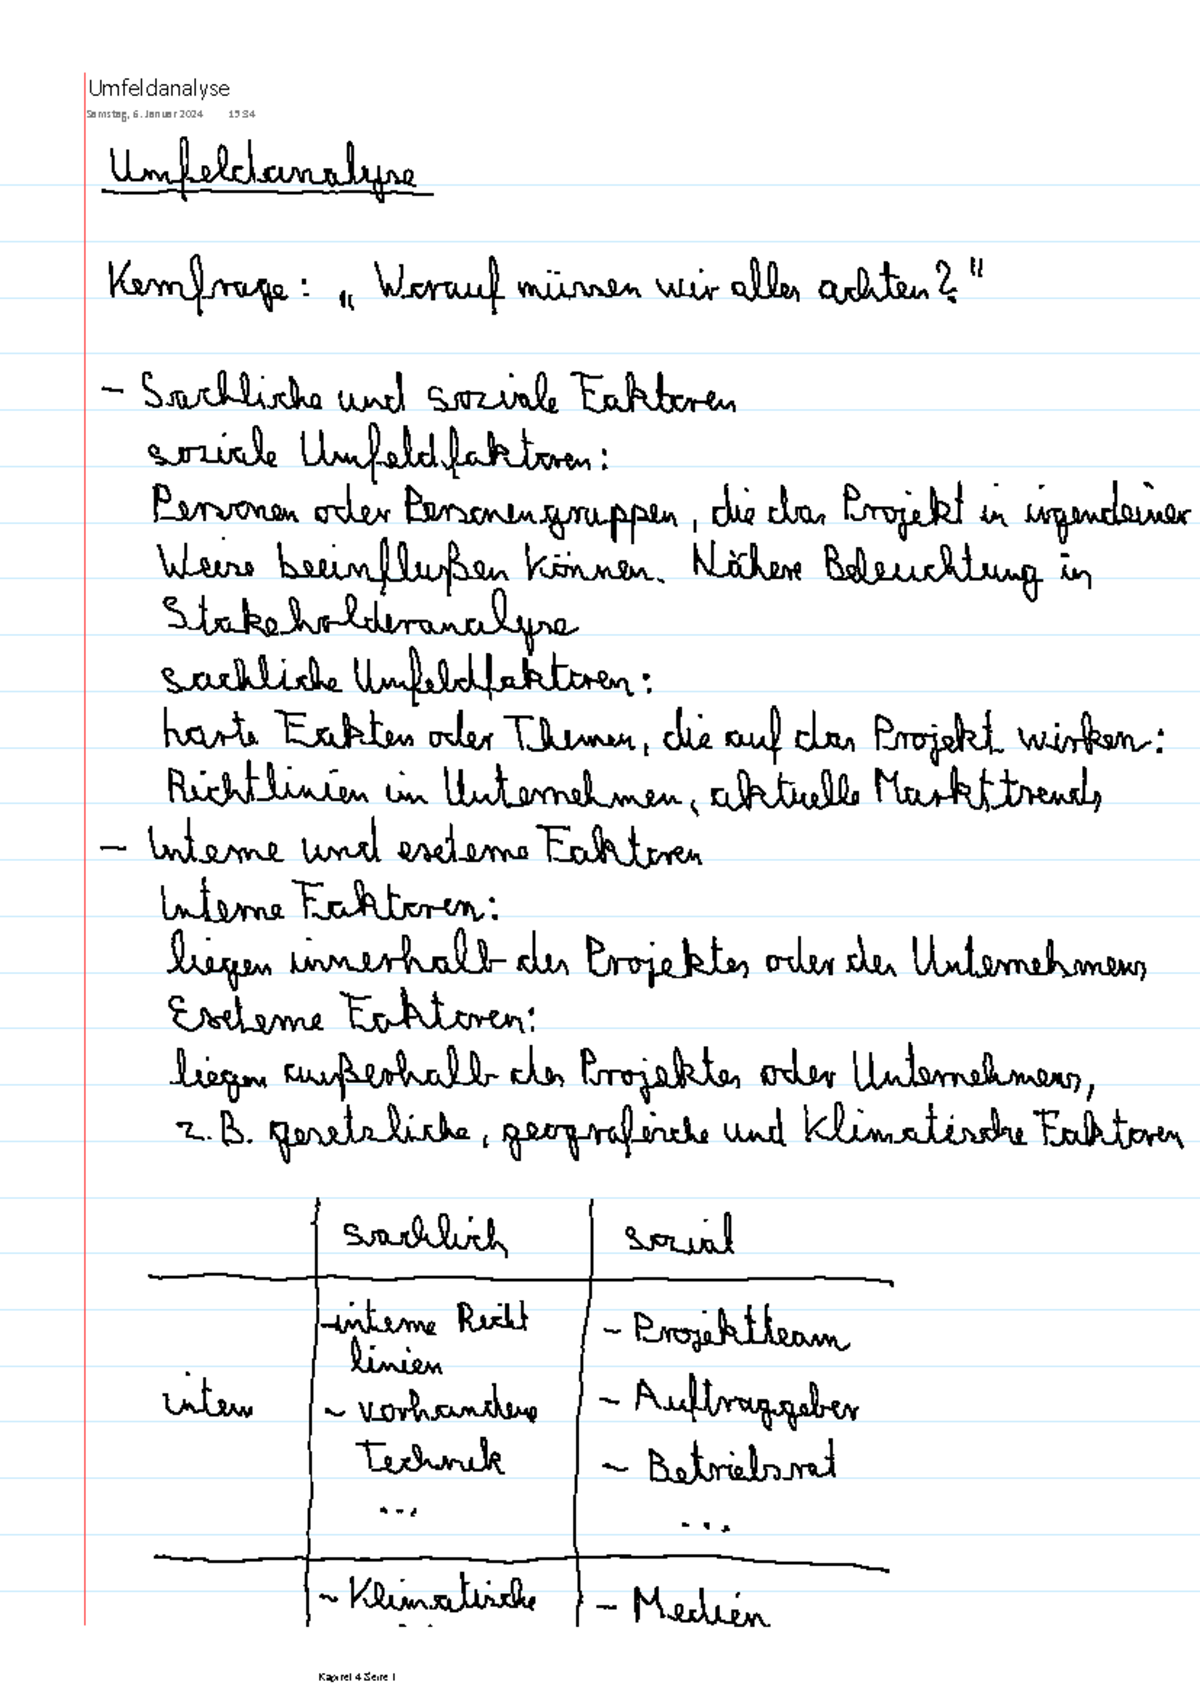 Umfeldanalyse
Samstag, 6. Januar 2024 15:34
Umfeldanalyse
Kernfrage: „Worauf müssen wir alles achten?"
- Sachliche und soziale Faktoren
soziale Umfeldfaktoren:
Personen oder Personengruppen, die das Projekt in irgendeiner
Weise beeinflußen können. Nähere Beleuchtung in
Stakeholderanalyse
sachliche Umfeldfaktoren:
harte Fakten oder Themen, die auf das Projekt wirken:
Richtlinien im Unternehmen, aktuelle Markttrends
- Interne und externe Faktoren
Interne Faktoren:
liegen innerhalb des Projektes oder des Unternehmens
Externe Faktoren:
liegen außerhalb des Projektes oder Unternehmens,
z.B. gesetzliche, geografische und klimatische Faktoren
sachlich sozial
- interne Richt
linien
- Projektteam
intern
- vorhandene
Technik
...
- Auftraggeber
- Betriebsrat
...
- Klimatische
- Medien
Kapitel 4 Seite 1